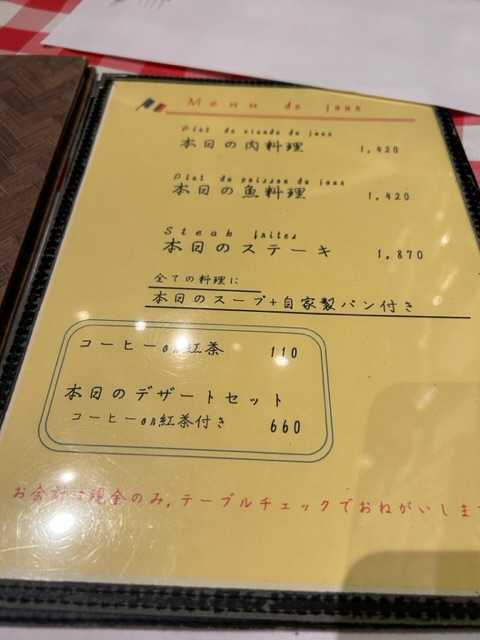 Menu de jour
Plat de viande du jour
本日の肉料理 1,420
Plat de poisson du jour
本日の魚料理 1,420
Steak frites
本日のステーキ 1,870
全ての料理に
本日のスープ+自家製パン付き
コーヒーor紅茶 110
本日のデザートセット
コーヒーor紅茶付き 660
お会計は現金のみ,テーブルチェックでおねがいしま